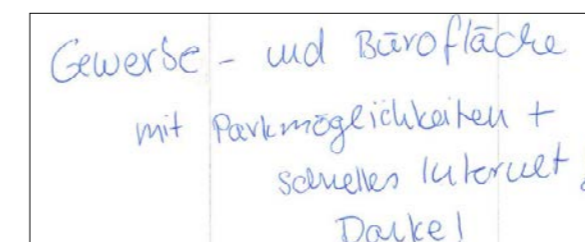 Gewerbe- und Bürofläche
mit Parkmöglichkeiten +
schnelles Internet!
Danke!